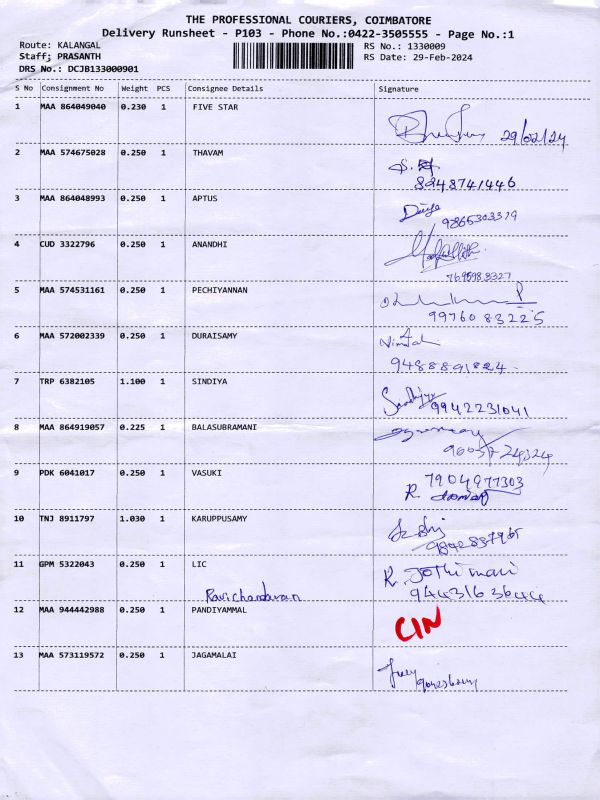 THE PROFESSIONAL COURIERS, COIMBATORE
Delivery Runsheet - P103 - Phone No.:0422-3505555 - Page No.:1
Route: KALANGAL
RS No.: 1330009
Staff: PRASANTH
RS Date: 29-Feb-2024
DRS No.: DCJB133000901
S No Consignment No Weight PCS Consignee Details Signature
1 MAA 864049040 0.230 1 FIVE STAR
29/02/24
2 MAA 574675028 0.250 1 THAVAM
8248741446
3 MAA 864048993 0.250 1 APTUS
9865303319
4 CUD 3322796 0.250 1 ANANDHI
5 MAA 574531161 0.250 1 PECHIYANNAN
99760 83225
6 MAA 572002339 0.250 1 DURAISAMY
9488891824
7 TRP 6382105 1.100 1 SINDIYA
9942231041
8 MAA 864919057 0.225 1 BALASUBRAMANI
9 PDK 6041017 0.250 1 VASUKI
7904977303
R.
10 TNJ 8911797 1.030 1 KARUPPUSAMY
9842837965
11 GPM 5322043 0.250 1 LIC
R. Jothimani
Ravichandran
12 MAA 944442988 0.250 1 PANDIYAMMAL
CIN
13 MAA 573119572 0.250 1 JAGAMALAI